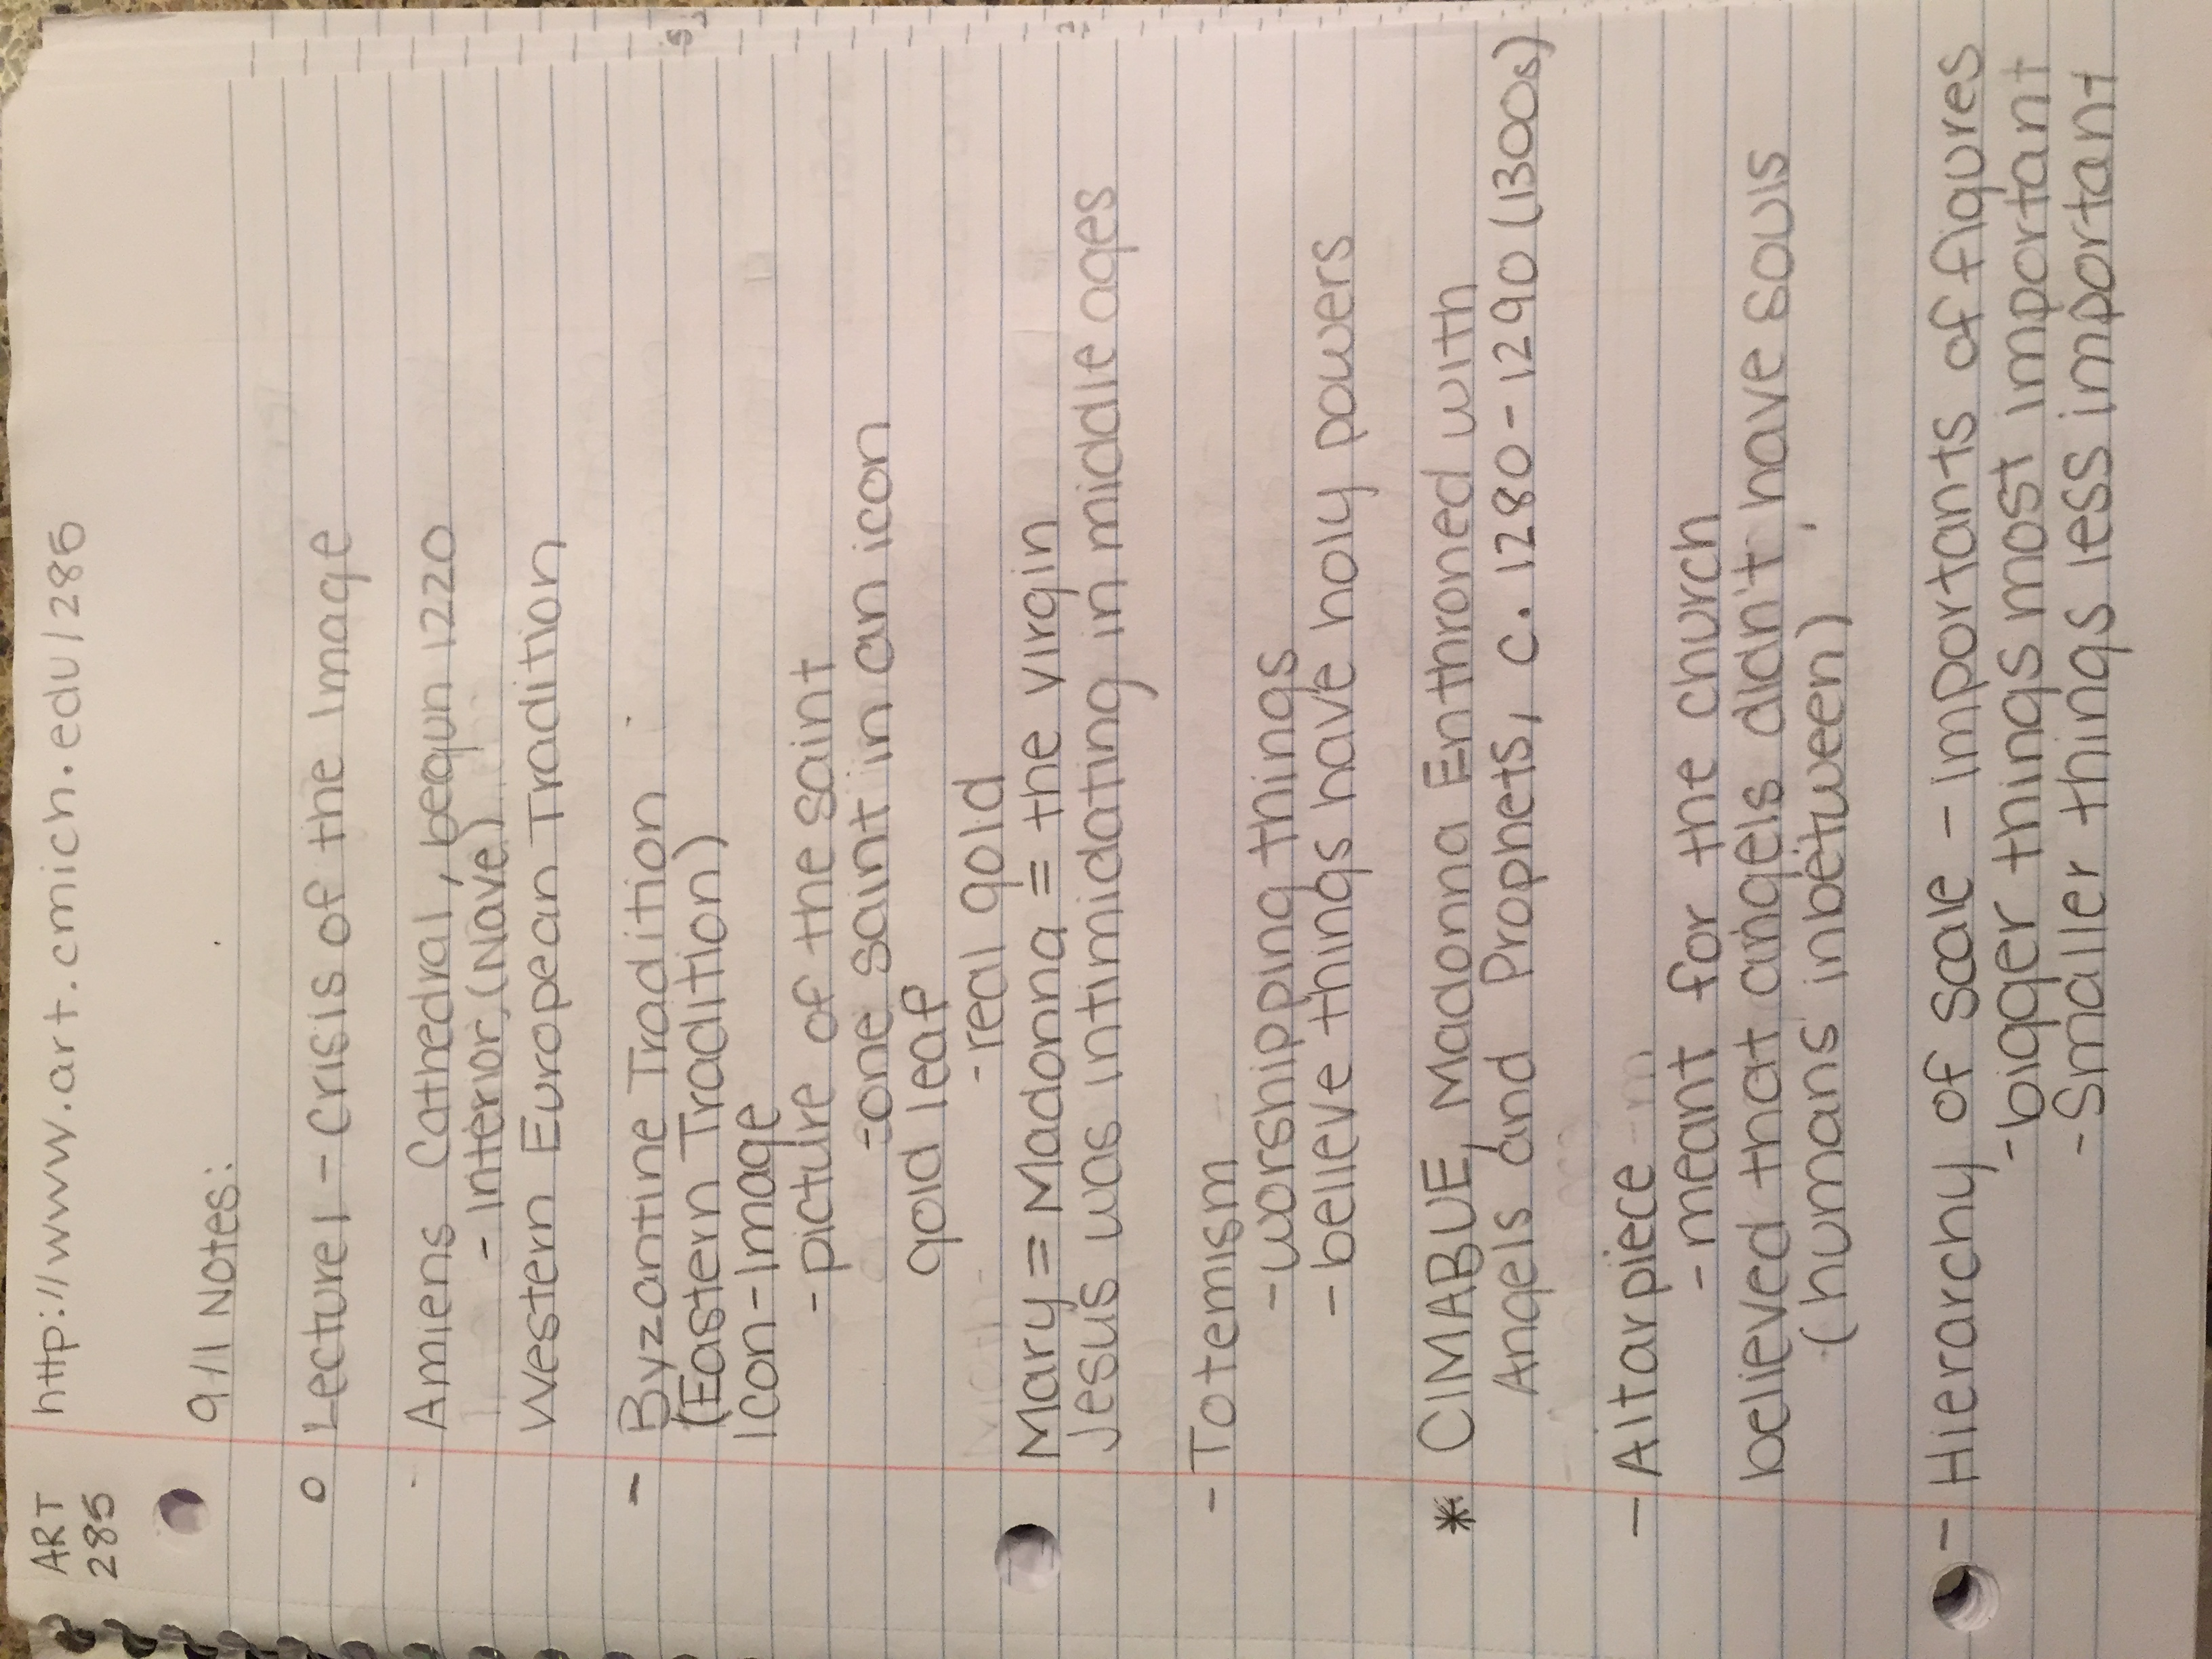 ART
285
http://www.art.cmich.edu/285
9/11 Notes:
o Lecture 1 - Crisis of the Image
Amiens Cathedral, begun 1220
- Interior, (Nave)
Western European Tradition
- Byzantine Tradition
(Eastern Tradition)
Icon - Image
- picture of the saint
- one saint in an icon
gold leaf
- real gold
Mary = Madonna = the virgin
Jesus was intimidating in middle ages
- Totemism
- worshipping things
- believe things have holy powers
* CIMABUE, Madonna Enthroned with
Angels and Prophets, c. 1280-1290 (1300s)
- Altarpiece
- meant for the church
believed that angels didn't have souls
(humans inbetween)
- Hierarchy of scale - importants of figures
- bigger things most important
- Smaller things less important